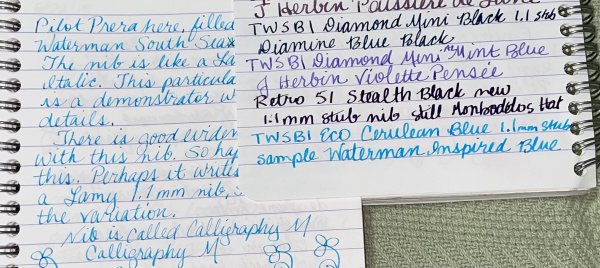 Pilot Prera here, filled
Waterman South Seas
The nib is like a La
Italic. This particula
is a demonstrator w
details.
There is good eviden
with this nib. So hap
this. Perhaps it writes
a Lamy 1.1mm nib, s
the variation.
Nib is called Calligraphy M
Calligraphy M
J Herbin Poussière de Lune
TWSBI Diamond Mini Black 1.1 stub
Diamine Blue Black
TWSBI Diamond Mini Mint Blue
J Herbin Violette Pensée
Retro 51 Stealth Black new
1.1mm stub nib still Monboddos Hat
TWSBI Eco Cerulean Blue 1.1mm stub
sample Waterman Inspired Blue